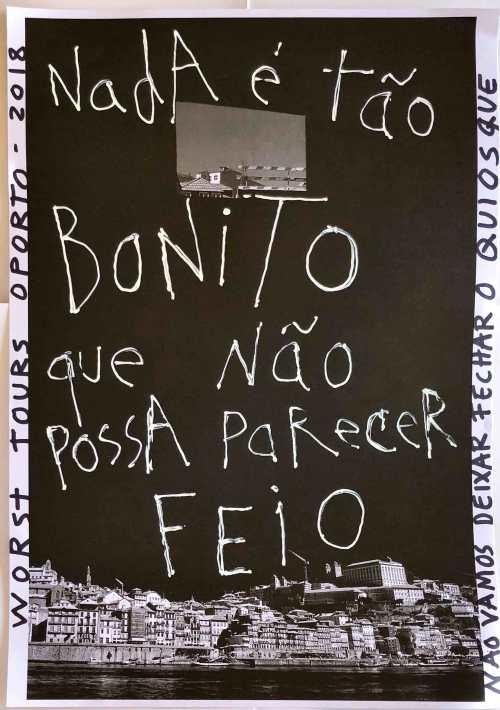 NadA é tão
BoNiTO
que NÃO
POSSA PaRecER
FEiO
WORSt TOURS OPORTO - 2018
NÃO VAMOS DEIXAR FECHAR O QUIOSQUE